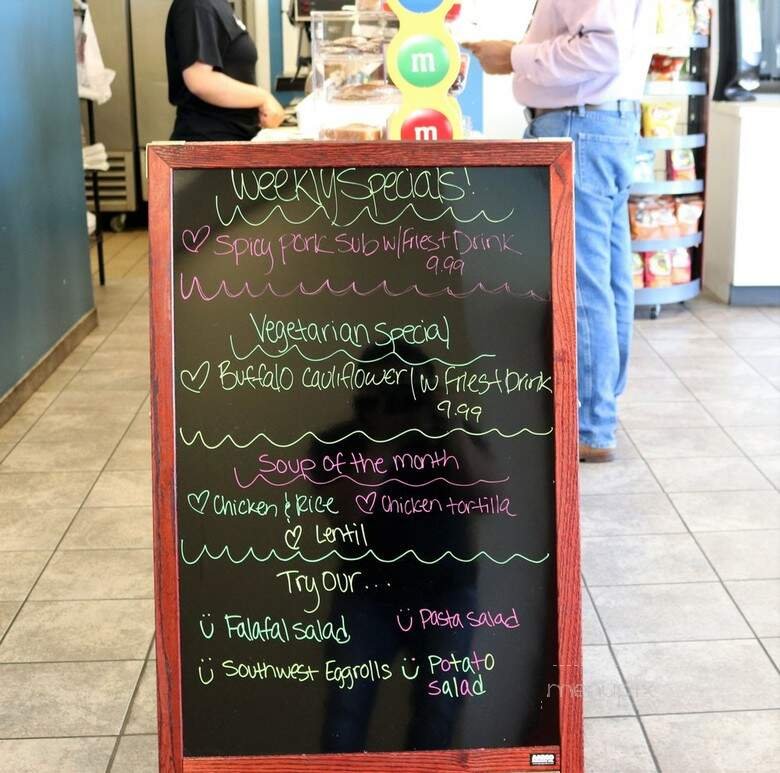 m
m
Weekly Specials!
♡ Spicy pork sub w/Fries + Drink
9.99
Vegetarian Special
♡ Buffalo cauliflower / w Fries + Drink
9.99
Soup of the month
♡ Chicken & Rice ♡ Chicken tortilla
♡ Lentil
Try Our...
ü Falafal salad ü Pasta salad
ü Southwest Eggrolls ü Potato
salad
menupix